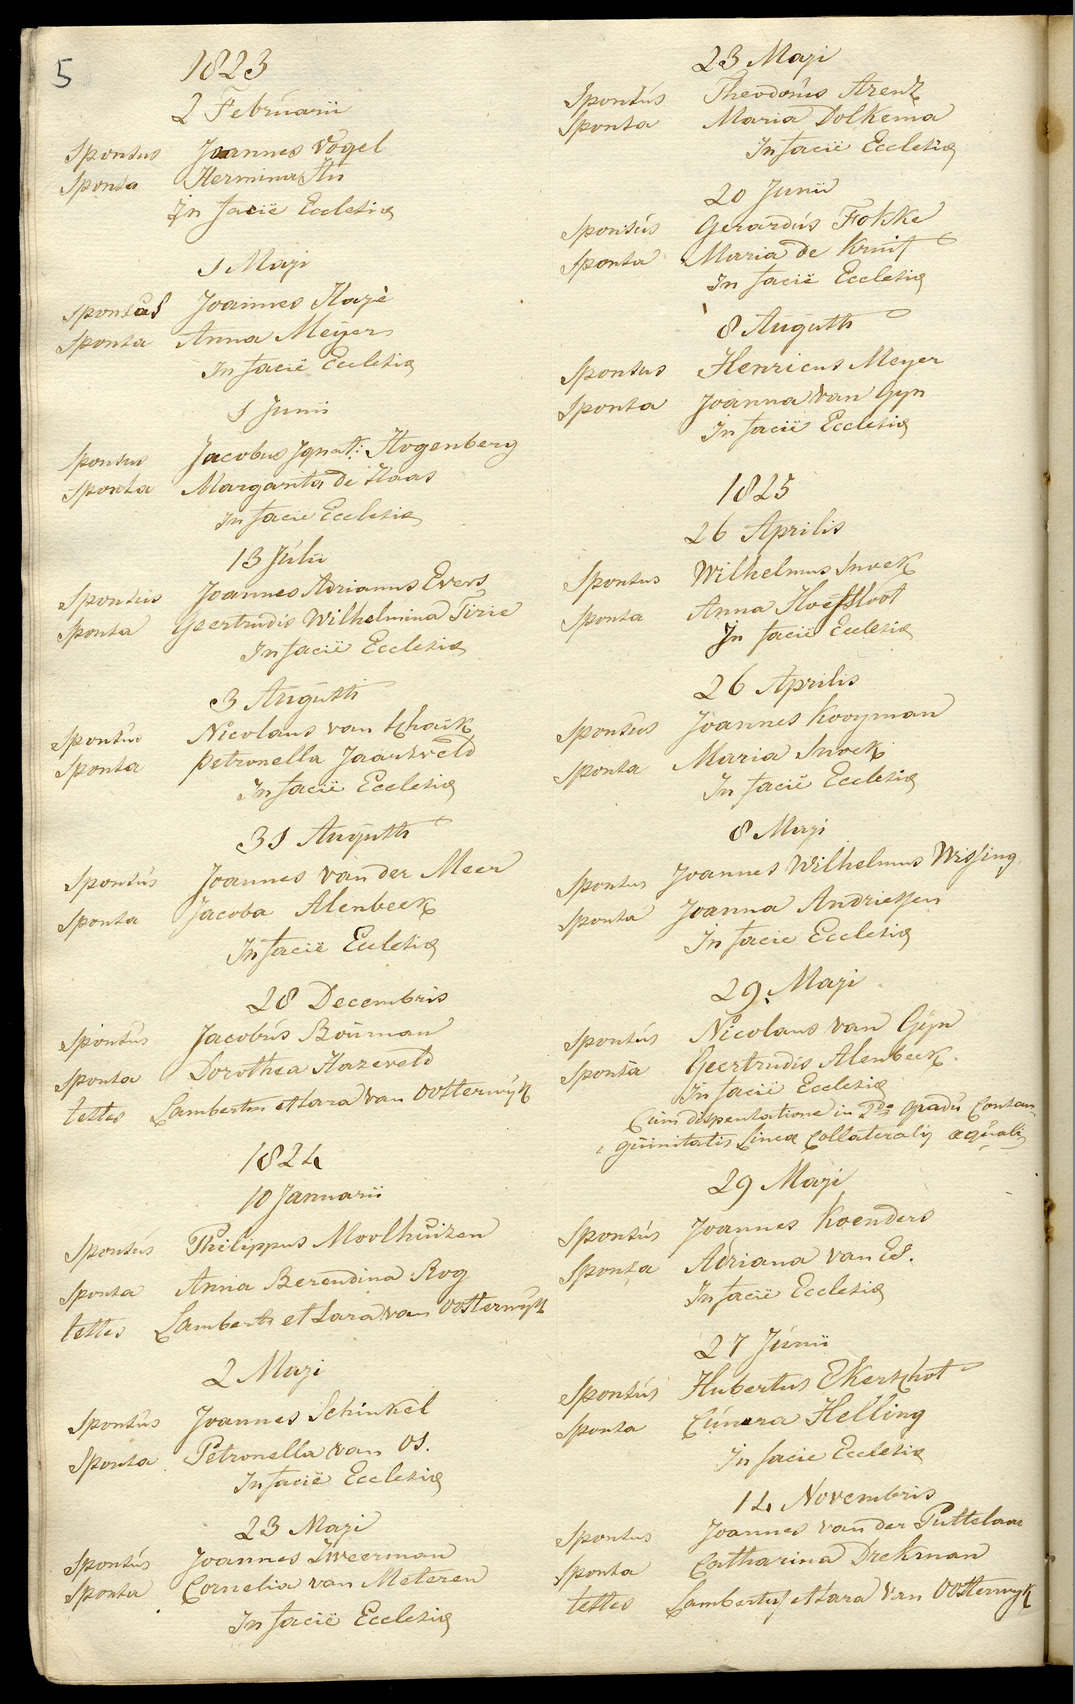 5
1823
2 Februarii
Sponsus Joannes Vogel
Sponsa Hermina
In facië Ecclesiæ
1 Maji
Sponsus Joannes Hazé
Sponsa Anna Meijer
In facië Ecclesiæ
1 Junii
Sponsus Jacobus Ignat: Hogenberg
Sponsa Margarita de Haas
In facie Ecclesiæ
13 Julii
Sponsus Joannes Adrianus Evers
Sponsa Geertrudis Wilhelmina Tirie
In facië Ecclesiæ
3 Augusti
Sponsus Nicolaus van Schaik
Sponsa Petronella
In facië Ecclesiæ
31 Augusti
Sponsus Joannes van der Meer
Sponsa Jacoba Alenbeek
In facië Ecclesiæ
28 Decembris
Sponsus Jacobus Bouman
Sponsa Dorothea Hazeveld
testes Lambertus et Sara van Oosterwijk
1824
10 Januarii
Sponsus Philippus Moolhuizen
Sponsa Anna Berendina Rog
testes Lamberts et Sara van Oosterwijk
2 Maji
Sponsus Joannes Schinkel
Sponsa Petronella van Os.
In facië Ecclesiæ
23 Maji
Sponsus Joannes Zweerman
Sponsa Cornelia van Meteren
In facië Ecclesiæ
23 Maji
Sponsus Theodorus Arenz
Sponsa Maria Dolkema
In facië Ecclesiæ
20 Junii
Sponsus Gerardus Fokke
Sponsa Maria de Kruif
In facië Ecclesiæ
8 Augusti
Sponsus Henricus Meyer
Sponsa Joanna van Gyn
In facië Ecclesiæ
1825
26 Aprilis
Sponsus Wilhelmus Snoek
Sponsa Anna Hoefsloot
In facië Ecclesiæ
26 Aprilis
Sponsus Joannes Kooyman
Sponsa Maria Snoek
In facië Ecclesiæ
8 Maji
Sponsus Joannes Wilhelmus Wissing
Sponsa Joanna Andriessen
In facie Ecclesiæ
29 Maji
Sponsus Nicolaus van Gÿn
Sponsa Geertrudis Alenbeek
In facië Ecclesiæ
Cum dispensatione in 2do gradu Consan-
guinitatis Lineæ Collateralis æqualis
29 Maji
Sponsus Joannes Koenders
Sponsa Adriana van Es.
In facië Ecclesiæ
27 Junii
Sponsus Hubertus Ekerschot
Sponsa Cunera Helling
In facie Ecclesiæ
14 Novembris
Sponsus Joannes van der Puttelaar
Sponsa Catharina Diekman
testes Lambertus et Sara van Oosterwyk